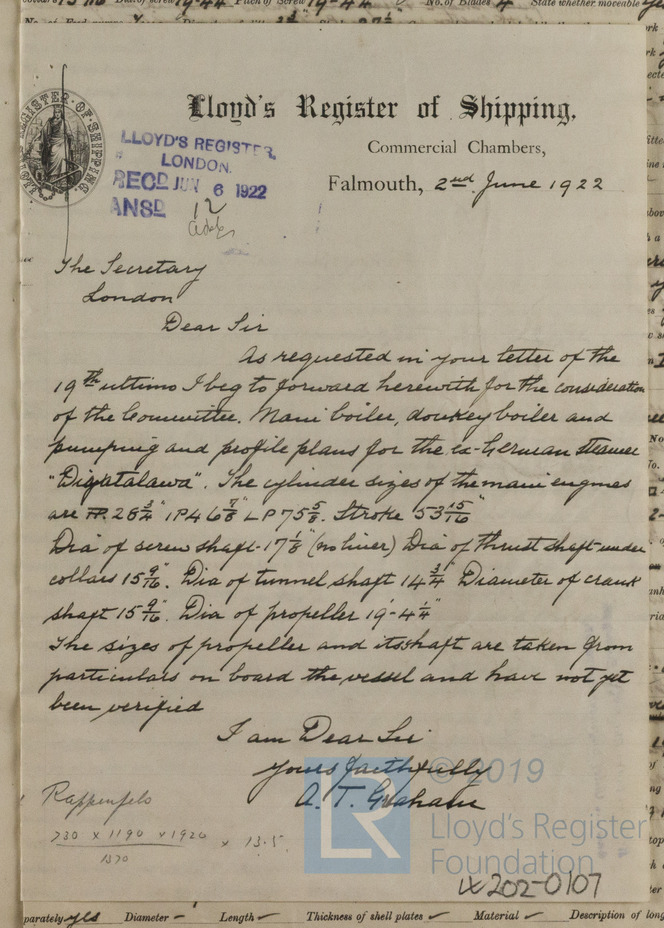 Dia of screw 19-44 Pitch of Screw 19-44 No. of Blades 4 State whether moveable
No. of Feed pumps
LLOYD'S REGISTER OF SHIPPING
Lloyd's Register of Shipping.
Commercial Chambers,
Falmouth, 2nd June 1922
LLOYD'S REGISTER,
LONDON.
RECD JUN 6 1922
ANSD 12
The Secretary
London
Dear Sir
As requested in your letter of the
19th ultimo I beg to forward herewith for the consideration
of the Committee. Main boiler, donkey boiler and
pumping and profile plans for the ex-German steamer
"Diyatalawa". The cylinder sizes of the main engines
are HP. 28 3/4" IP 46 7/8" LP 75 5/8. Stroke 53 15/16"
Dia of screw shaft-17 1/8" (no liner) Dia of thrust shaft-under
collars 15 9/16". Dia of tunnel shaft 14 3/4" Diameter of crank
shaft 15 9/16". Dia of propeller 19'-4 1/4"
The sizes of propeller and its shaft are taken from
particulars on board the vessel and have not yet
been verified
I am Dear Sir
yours faithfully
A. T. Graham
Rappenfels
730 x 1190 x 1920 x 13.5.
1370
© 2019
LR
Lloyd's Register
Foundation
W202-0107
parately yes Diameter Length Thickness of shell plates Material Description of long